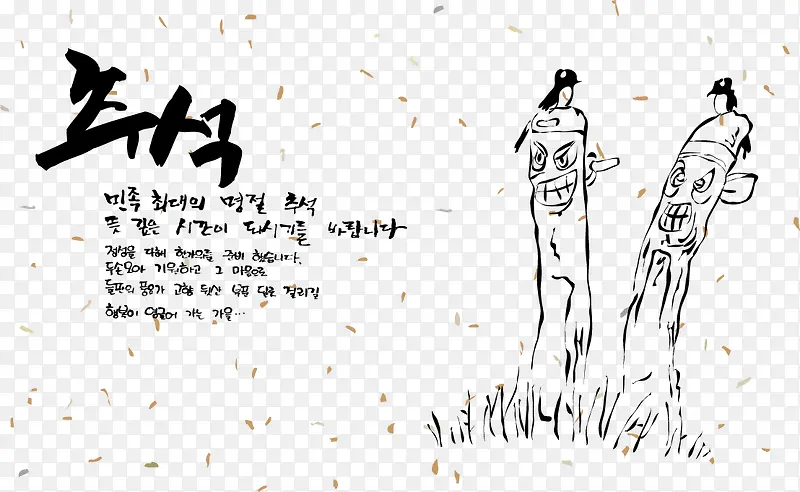 추석
민족 최대의 명절 추석
뜻 깊은 시간이 되시기를 바랍니다
정성을 다해 한가위를 준비 했습니다.
두손모아 기원하고 그 마음으로
들판의 풍요가 고향 뒷산 걸리길
햇살이 영글어 가는 가을...